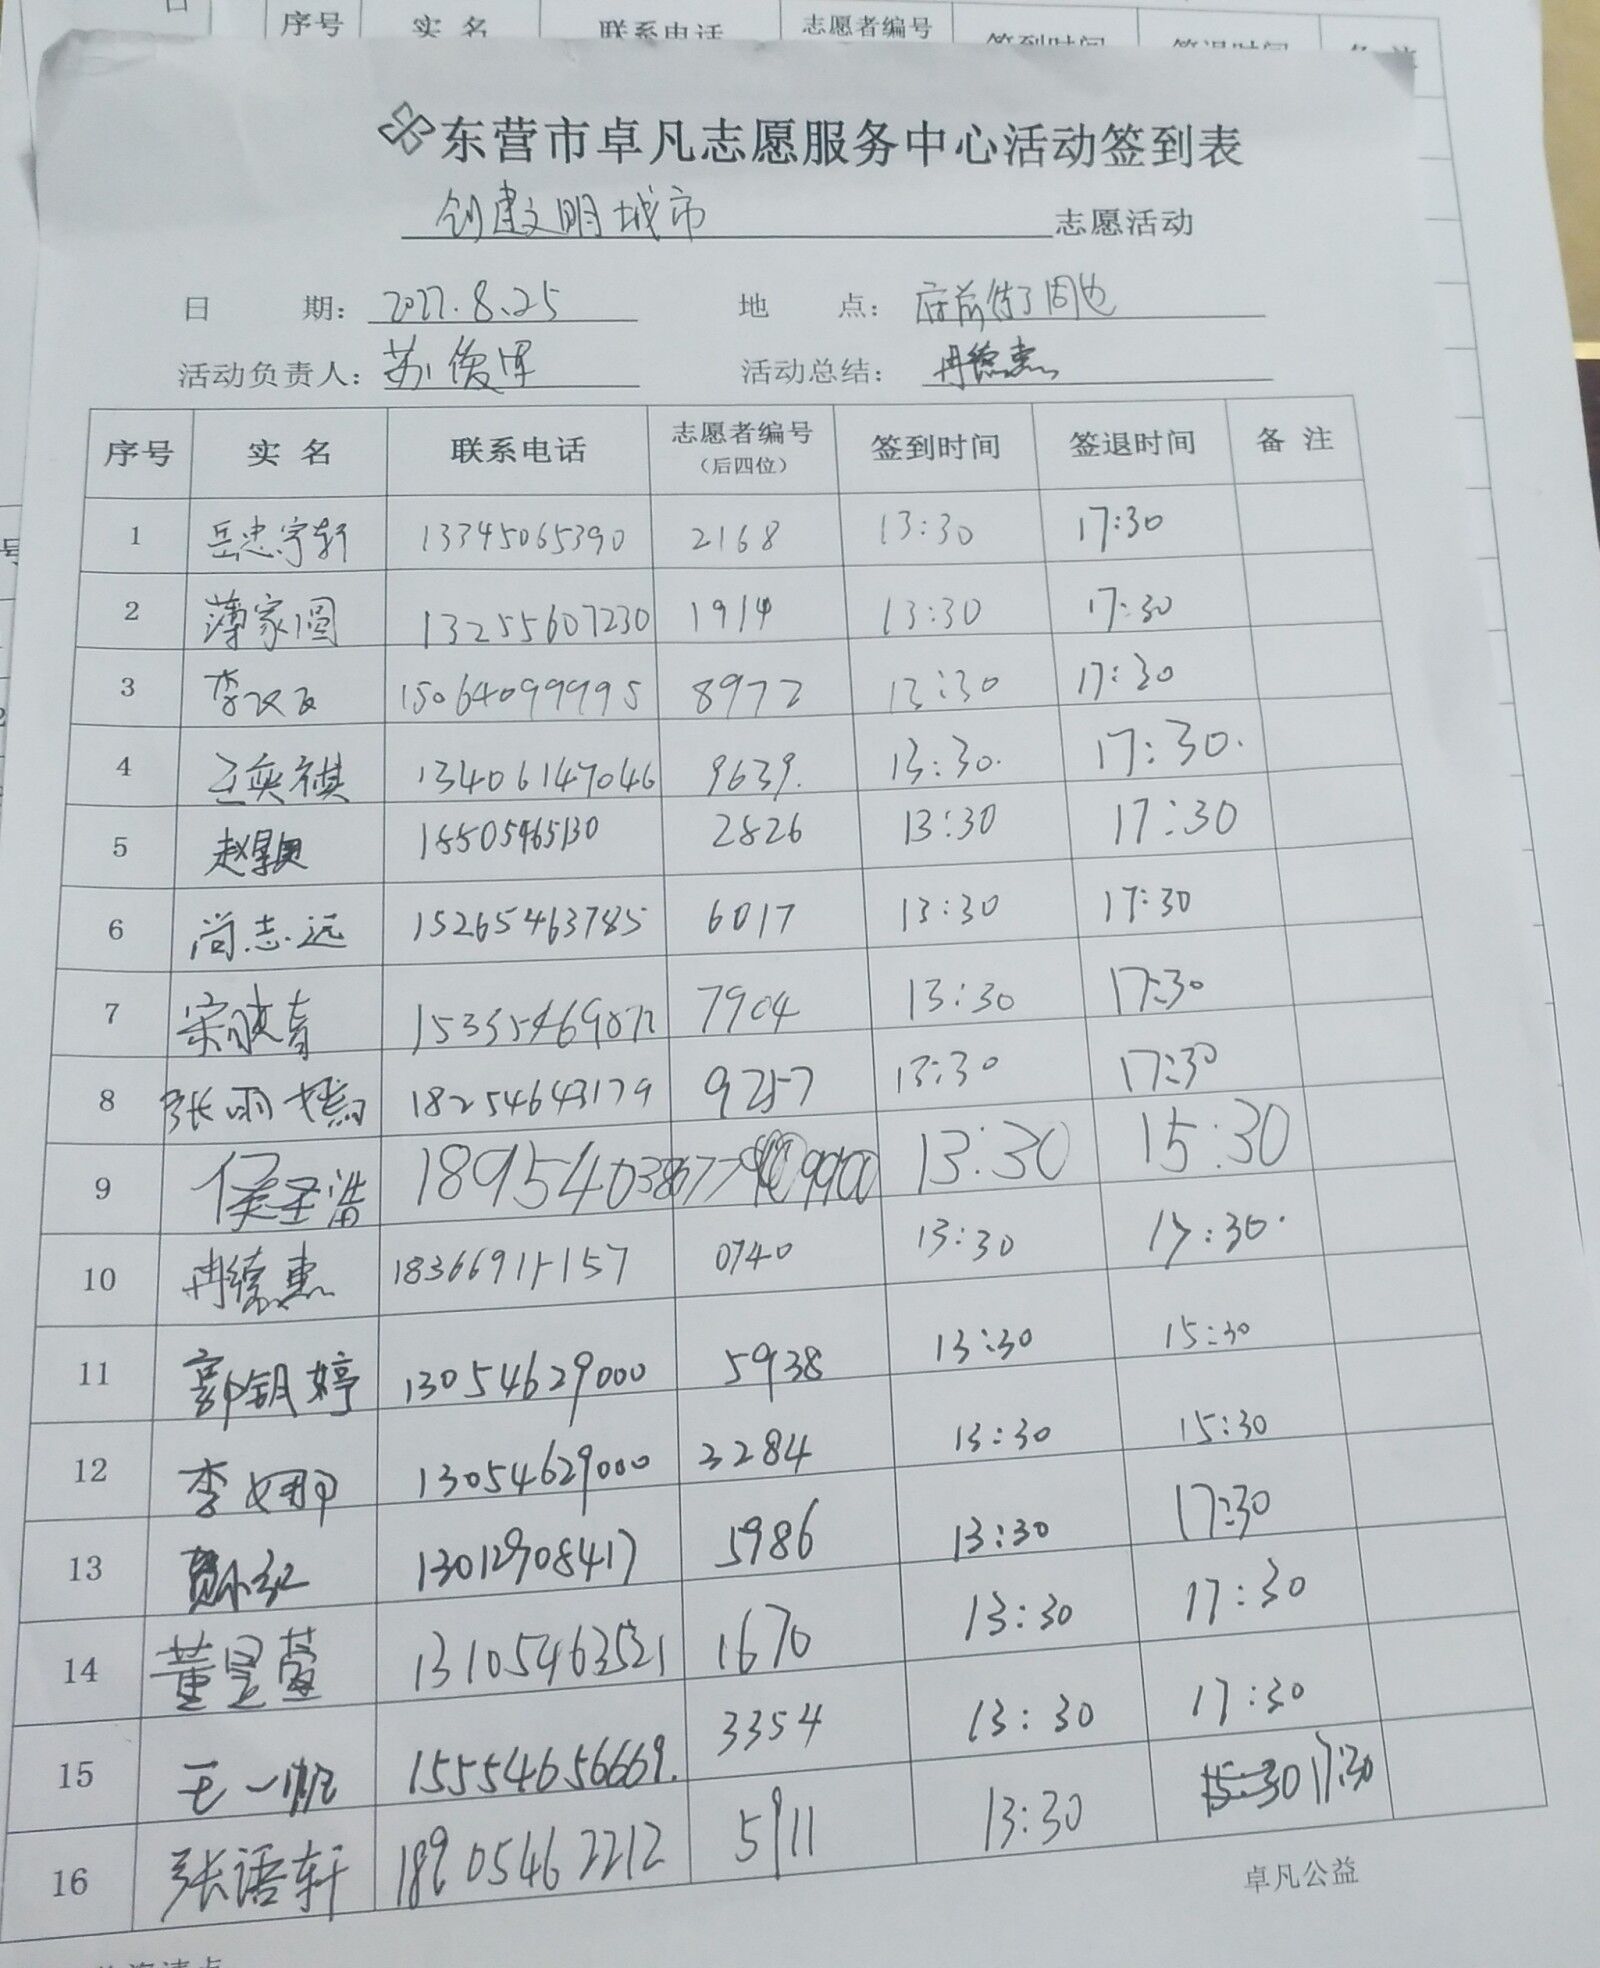 序号 实 名 联系电话 志愿者编号 签到时间 签退时间 备 注
东营市卓凡志愿服务中心活动签到表
创建文明城市 志愿活动
日 期: 2022.8.25 地 点: 府前街周边
活动负责人: 苏俊洋 活动总结: 冉德惠
序号 实 名 联系电话 志愿者编号 签到时间 签退时间 备 注
(后四位)
1 岳忠宇轩 13345065390 2168 13:30 17:30
2 薄家圆 13255607230 1914 13:30 17:30
3 李 15064099995 8972 13:30 17:30
4 王奕祺 13406147046 9639. 13:30. 17:30.
5 赵 18505465130 2826 13:30 17:30
6 尚志远 15265463785 6017 13:30 17:30
7 宋 7904 13:30 17:30
8 张雨嫣 18254643179 9257 13:30 17:30
9 侯圣浩 13:30 15:30
10 冉德惠 0740 13:30 17:30.
11 郭钥婷 13054629000 5938 13:30 15:30
12 李娜 13054629000 3284 13:30 15:30
13 13012908417 5986 13:30 17:30
14 董昱萱 13105463521 1670 13:30 17:30
15 王一帆 15554656669. 3354 13:30 17:30
16 张语轩 18905462212 5911 13:30 15:30 17:30
卓凡公益